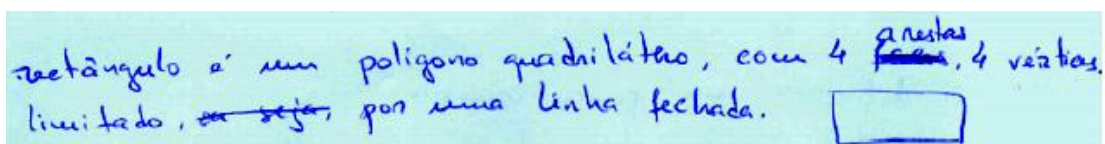 rectângulo é um polígono quadrilátero, com 4 arestas, 4 vértices,
limitado, ou seja, por uma linha fechada.